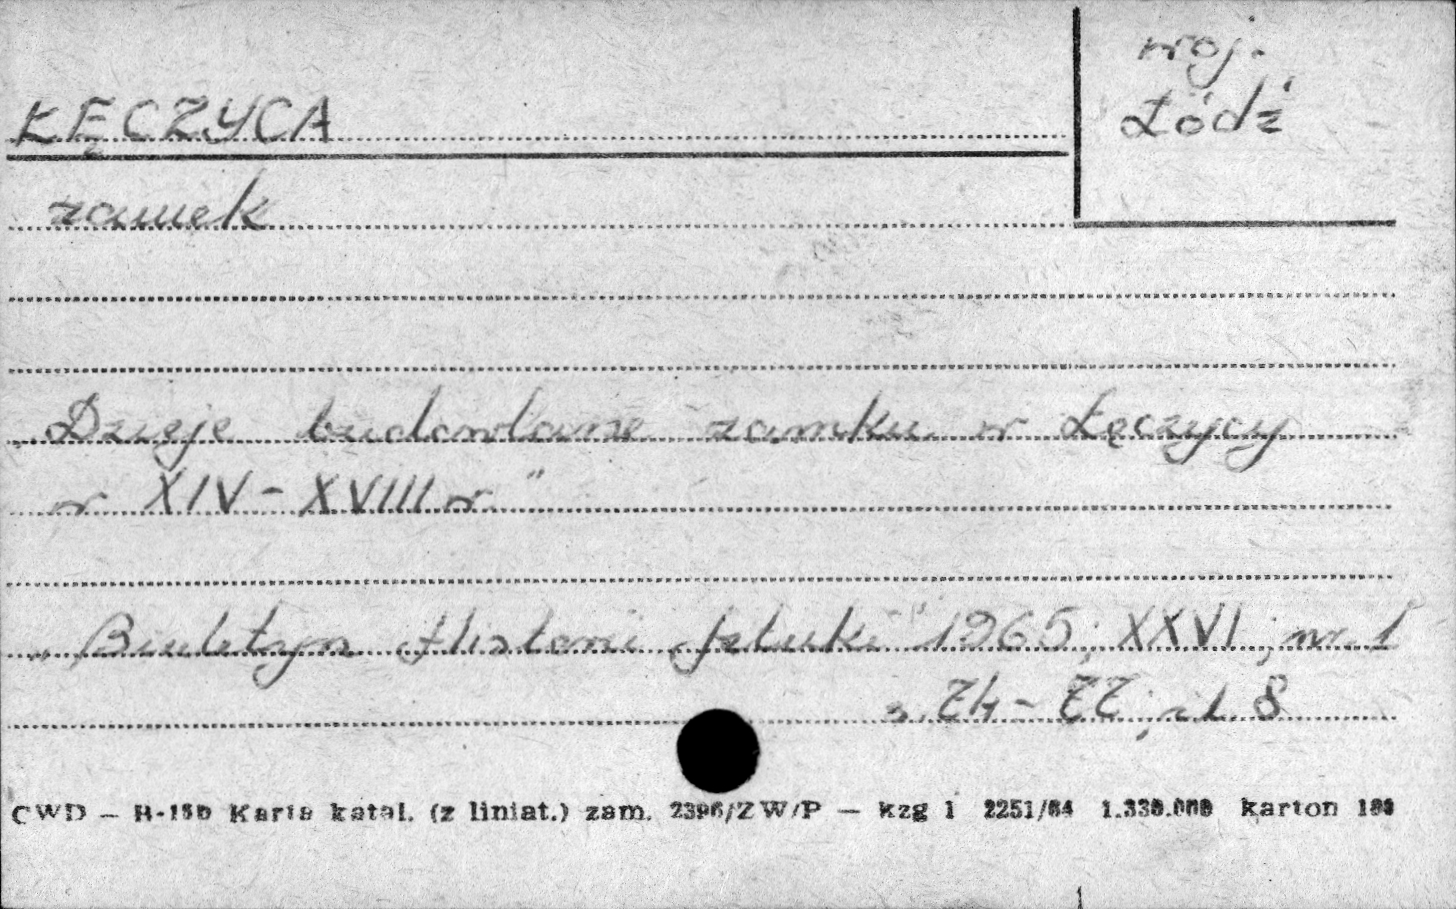 woj.
Łódź
ŁĘCZYCA
zamek
„Dzieje budowlane zamku w Łęczycy
w XIV - XVIII w."
„Biuletyn Historii Sztuki" 1965; XXVI; nr. 1
s. 74 - 77; il. 8
CWD — B-15b Karta katal. (z liniat.) zam. 2396/ZW/P — kzg 1 2251/64 1.330.000 karton 180